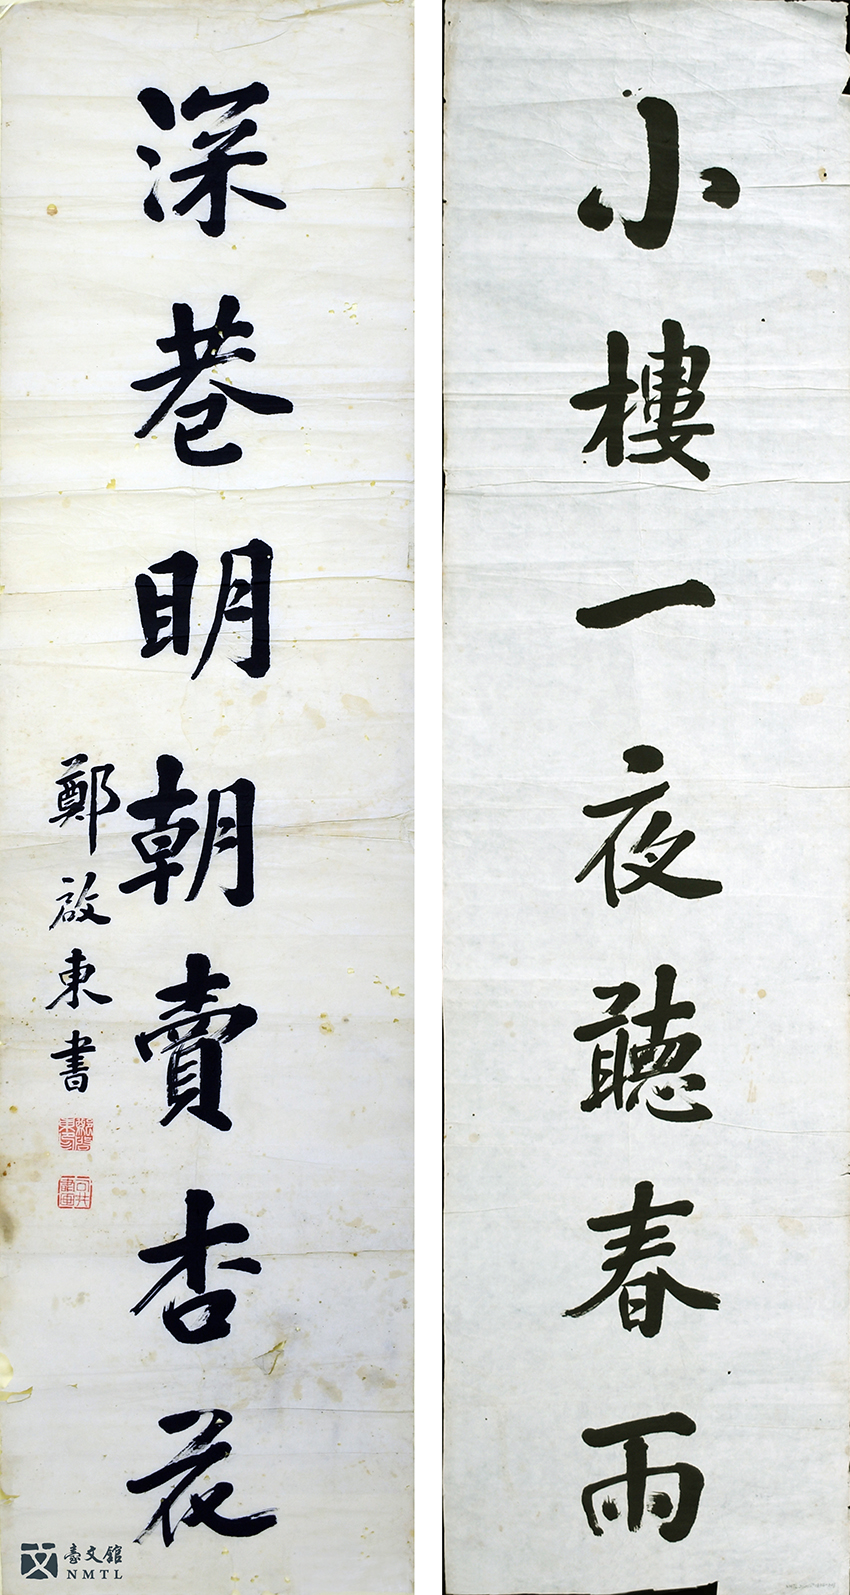 小樓一夜聽春雨
深巷明朝賣杏花
鄭啟東書
臺文館
NMTL